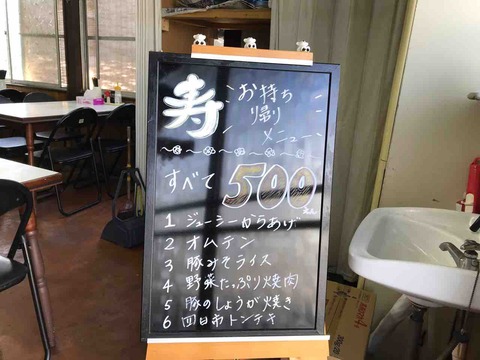 寿
お持ち
帰り
メニュー
すべて500えん
1 ジューシーからあげ
2 オムテン
3 豚みそライス
4 野菜たっぷり焼肉
5 豚のしょうが焼き
6 四日市トンテキ